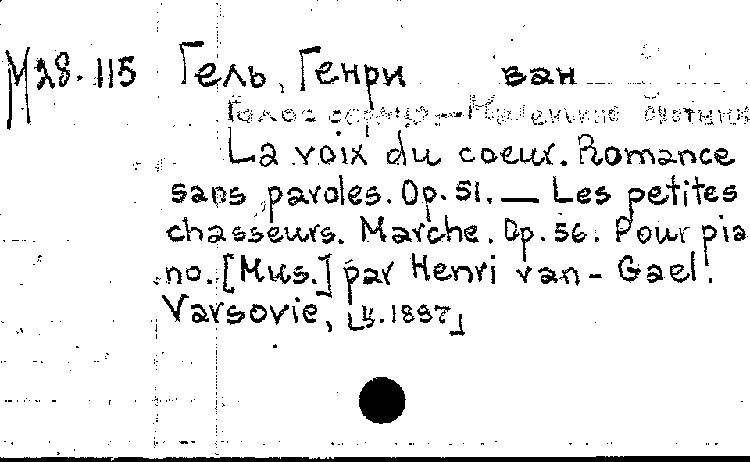 М28.115 Гель, Генри ван
Голос сердца. — Маленькие охотники
La voix du coeur. Romance
sans paroles. Op. 51. — Les petites
chasseurs. Marche. Op. 56. Pour pia
no. [Mus.] par Henri van-Gael.
Varsovie, [ц. 1897]